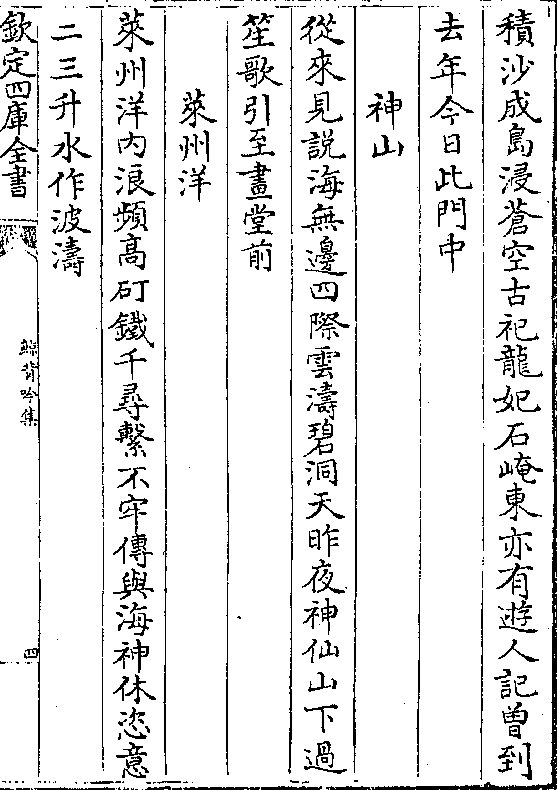 積沙成島浸蒼空古祀龍妃石崦東亦有遊人記曽到
去年今日此門中
神山
從來見説海無邊四際雲濤碧洞天昨夜神仙山下過
笙歌引至畫堂前
萊州洋
萊州洋内浪頻髙矴鐵千尋繫不牢傳與海神休恣意
二三升水作波濤
欽定四庫全書
鯨背吟集
四